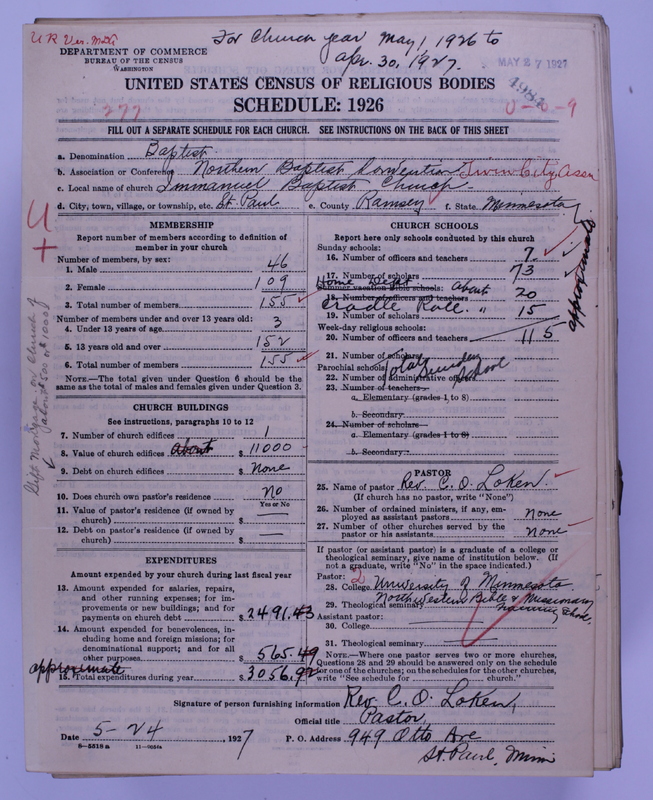 U R Ver. For Church year May 1, 1926 to
Apr. 30, 1927.
DEPARTMENT OF COMMERCE
BUREAU OF THE CENSUS
WASHINGTON
MAY 27 1927
UNITED STATES CENSUS OF RELIGIOUS BODIES
SCHEDULE: 1926
277
0-0-9
FILL OUT A SEPARATE SCHEDULE FOR EACH CHURCH. SEE INSTRUCTIONS ON THE BACK OF THIS SHEET
a. Denomination Baptist
b. Association or Conference Northern Baptist Convention Twin City Assn
c. Local name of church Immanuel Baptist Church
d. City, town, village, or township, etc. St. Paul e. County Ramsey f. State Minnesota
MEMBERSHIP
Report number of members according to definition of
member in your church
Number of members, by sex:
1. Male 46
2. Female 109
3. Total number of members 155
Number of members under and over 13 years old:
4. Under 13 years of age 3
5. 13 years old and over 152
6. Total number of members 155
NOTE.—The total given under Question 6 should be the
same as the total of males and females given under Question 3.
CHURCH BUILDINGS
See instructions, paragraphs 10 to 12
7. Number of church edifices 1
8. Value of church edifices about $ 11000
9. Debt on church edifices $ None
10. Does church own pastor's residence No
Yes or No
11. Value of pastor's residence (if owned by
church) $ —
12. Debt on pastor's residence (if owned by
church) $ —
Gift Mortgage on Church of
about $500 or $1000
EXPENDITURES
Amount expended by your church during last fiscal year
13. Amount expended for salaries, repairs,
and other running expenses; for im-
provements or new buildings; and for
payments on church debt $ 2491.43
14. Amount expended for benevolences, in-
cluding home and foreign missions; for
denominational support; and for all
other purposes $ 565.49
approximate
15. Total expenditures during year $ 3056.92
CHURCH SCHOOLS
Report here only schools conducted by this church
Sunday schools:
16. Number of officers and teachers 7
17. Number of scholars 73
Home Dept
Summer vacation Bible schools: about
18. Number of officers and teachers 20
Cradle Roll. "
19. Number of scholars 15
approximate
Week-day religious schools:
20. Number of officers and teachers 115
21. Number of scholars
Total Sunday School
Parochial schools:
22. Number of administrative officers
23. Number of teachers—
a. Elementary (grades 1 to 8)
b. Secondary
24. Number of scholars—
a. Elementary (grades 1 to 8)
b. Secondary
PASTOR
25. Name of pastor Rev. C. O. Loken
(If church has no pastor, write "None")
26. Number of ordained ministers, if any, em-
ployed as assistant pastors None
27. Number of other churches served by the
pastor or his assistants None
If pastor (or assistant pastor) is a graduate of a college or
theological seminary, give name of institution below. (If
not a graduate, write "No" in the space indicated.)
Pastor: 2
28. College University of Minnesota
29. Theological seminary Northwestern Bible & Missionary
Training School
Assistant pastor:
30. College
31. Theological seminary
NOTE.—Where one pastor serves two or more churches,
Questions 28 and 29 should be answered only on the schedule
for one of the churches; on the schedules for the other churches,
write "See schedule for church."
Signature of person furnishing information Rev. C. O. Loken,
Official title Pastor,
Date 5-24, 1927 P. O. Address 949 Otto Ave
St. Paul, Minn
8—5518a 11—9054a